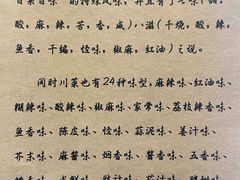 酸，麻，辣，苦，香，咸）八滋（干烧，酸，辣，
鱼香，干煸，怪味，椒麻，红油）之说。
同时川菜也有24种味型，麻辣味、红油味、
糊辣味、酸辣味、椒麻味、家常味、荔枝辣香味、
鱼香味、陈皮味、怪味、蒜泥味、姜汁味、
芥末味、麻酱味、烟香味、酱香味、五香味、